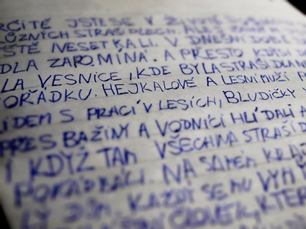 RČITĚ JSTE SE V ŽIVOTĚ
RŮZNÝCH STRAŠIDLECH,
JEŠTĚ NESETKALI. V DNEŠNÍ DOBĚ
DLA ZAPOMÍNÁ. A PŘESTO KDYSI
LA VESNICE, KDE BYLA STRAŠIDLA
POŘÁDKU. HEJKALOVÉ A LESNÍ MUŽI
LIDEM S PRACÍ V LESÍCH, BLUDIČKY
PŘES BAŽINY A VODNÍCI HLÍDALI
I KDYŽ TAM VŠECHNA STRAŠI
NA SAMÉM KRAJ
DŮM. KAŽDÝ SE MU VYH
ČLOVĚK, KTER